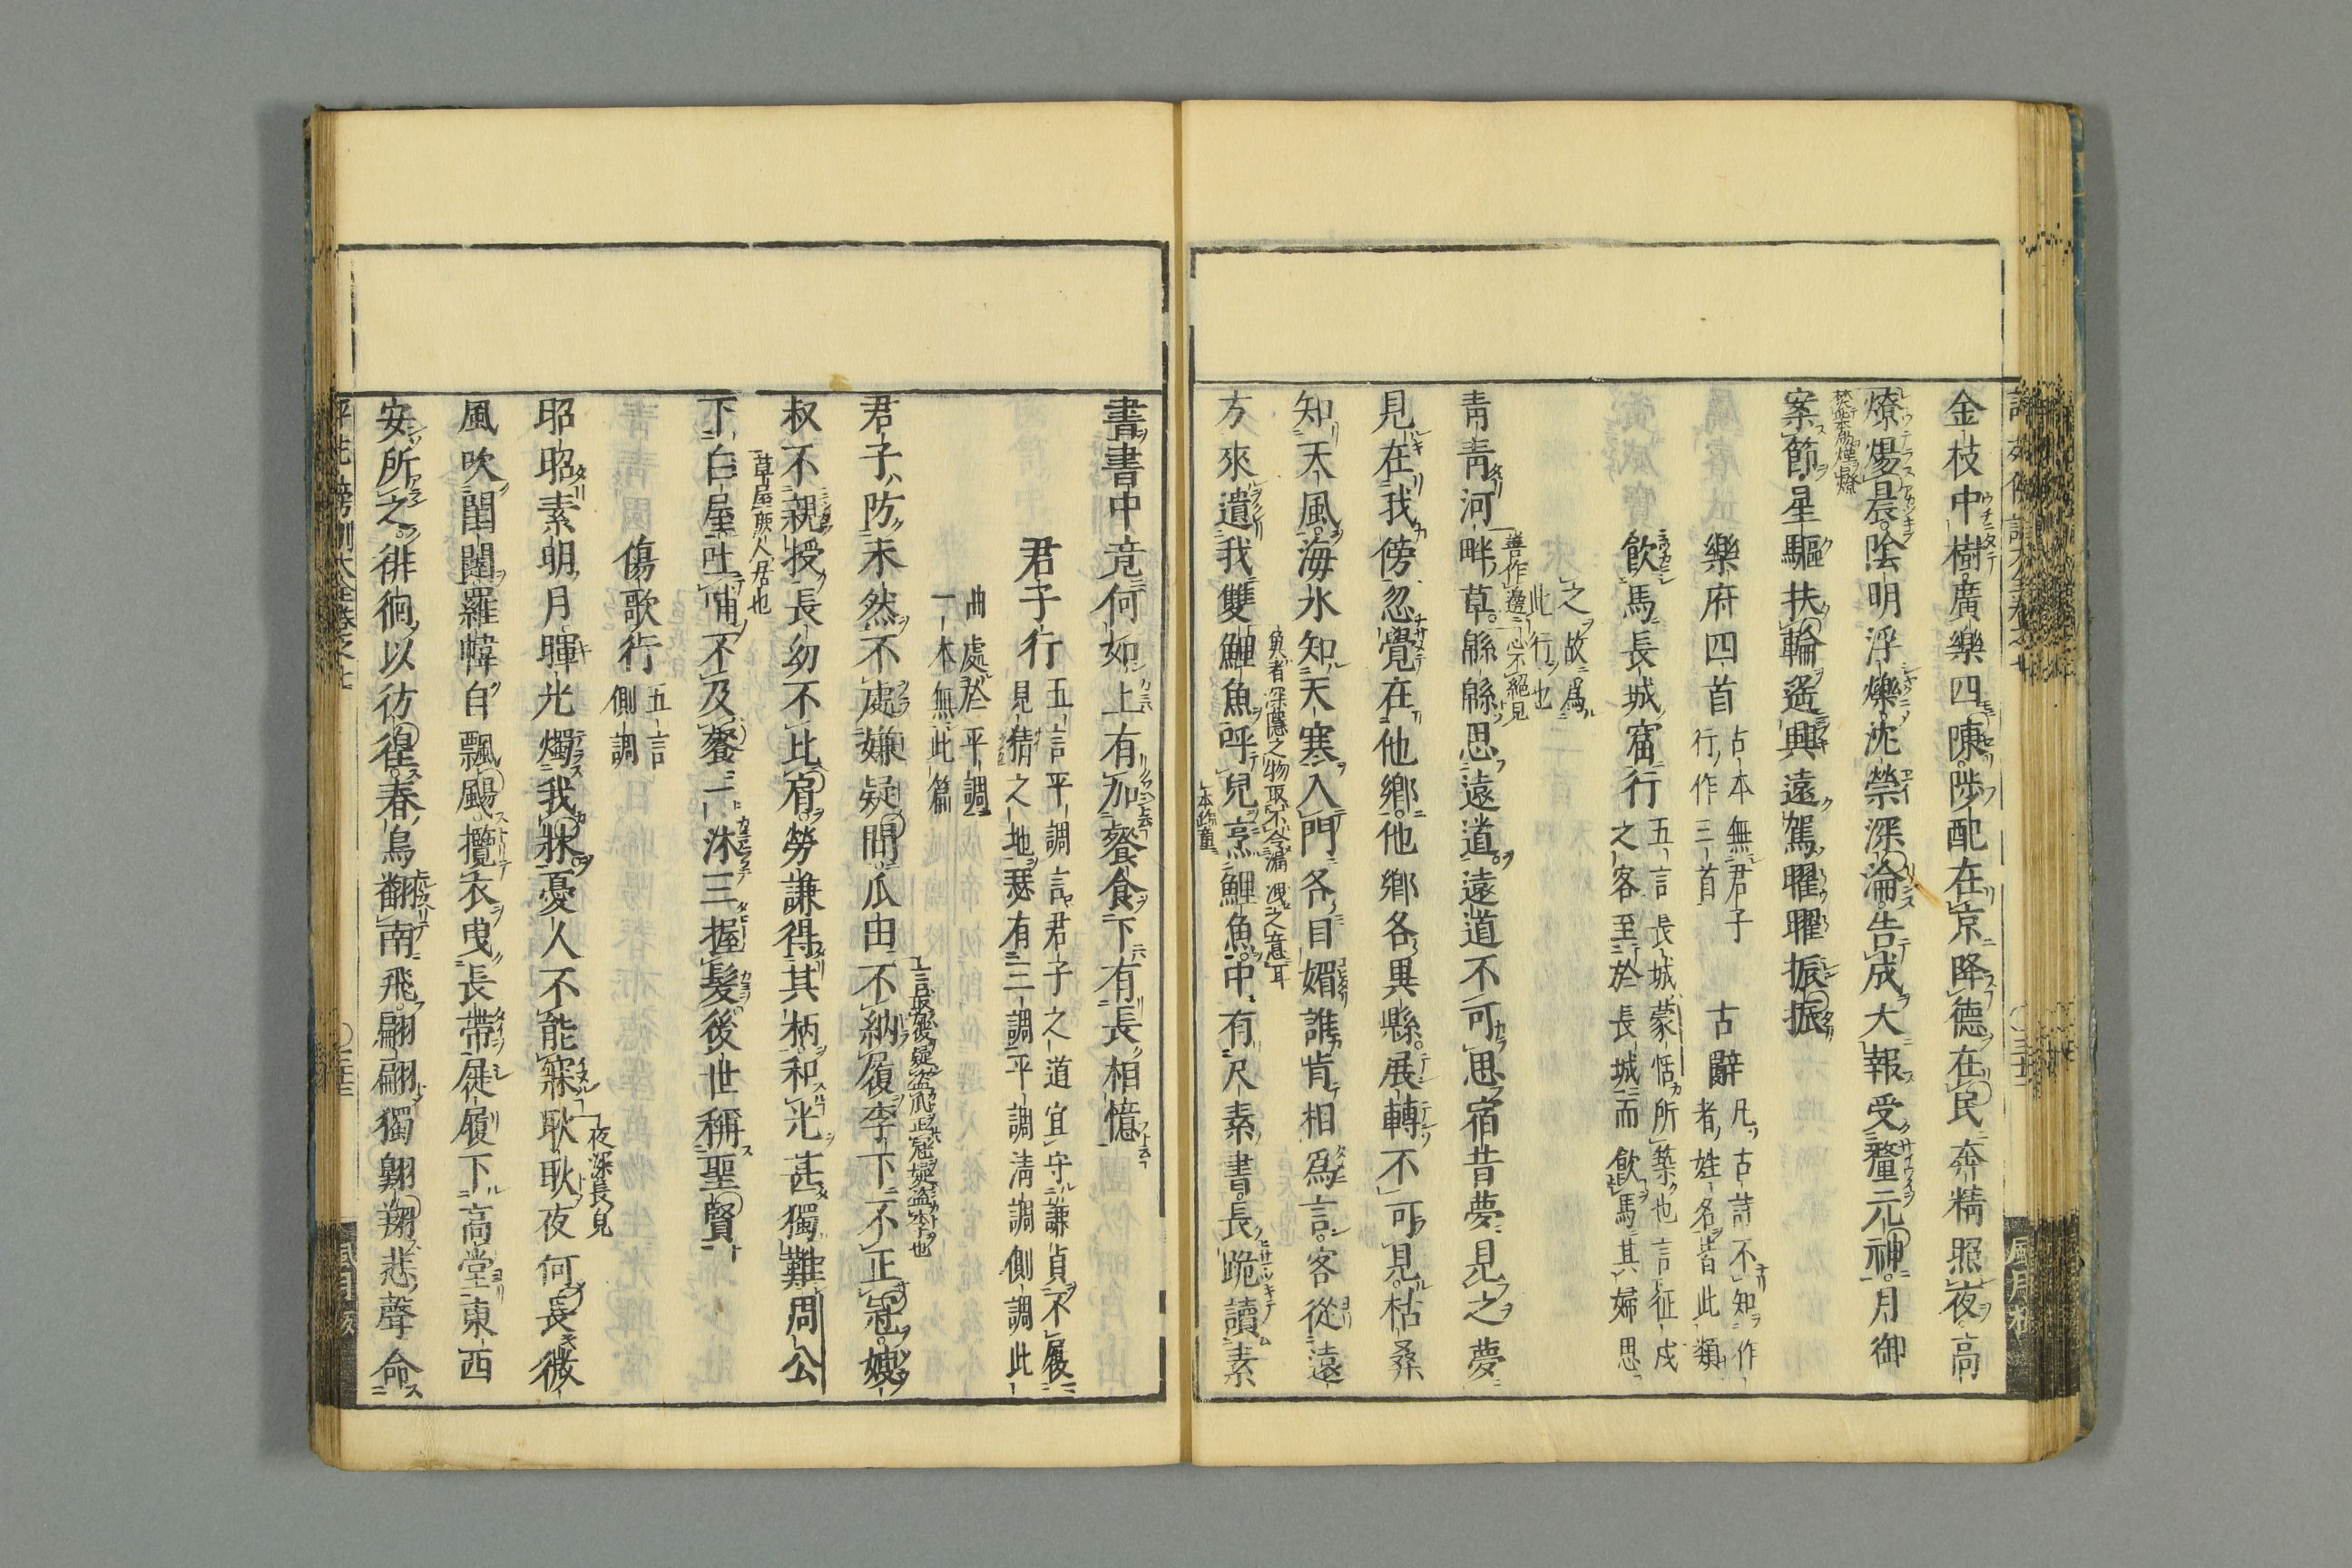 金枝中樹廣樂四陳陟配在京降德在民奔精照夜高
燎煬晨陰明浮爍沈榮深淪告成大報受釐元神月御
案節星驅扶輪遥興遠駕曜曜振振
樂府四首
古本無君子
行作三首
古辭
凡古詩不知作
者姓名皆此類
飲馬長城窟行
五言長城蒙恬所築也言征戍
之客至於長城而飲馬其婦思
之故為
此行也
青青河畔草
善作邊
心不絕見
緜緜思遠道遠道不可思宿昔夢見之夢
見在我傍忽覺在他鄉他鄉各異縣展轉不可見枯桑
知天風海水知天寒入門各自媚誰肯相為言客從遠
方來遺我雙鯉魚呼兒烹鯉魚中有尺素書長跪讀素
魚者深隱之物取不令漏洩之意耳
書書中竟何如上有加餐食下有長相憶
君子行
五言平調言君子之道宜守謙貞不履
見猜之地瑟有三調平調清調側調此
曲處於平調
一本無此篇
君子防未然不處嫌疑間瓜田不納履李下不正冠嫂
叔不親授長幼不比肩勞謙得其柄和光甚獨難周公
下白屋吐哺不及餐一沐三握髮後世稱聖賢
草屋庶人居也
傷歌行
五言
側調
昭昭素明月暉光燭我牀憂人不能寐耿耿夜何長微
夜深長皃
風吹閨闥羅幃自飄颺攬衣曳長帶屣履下高堂東西
安所之徘徊以彷徨春鳥翻南飛翩翩獨翺翔悲聲命